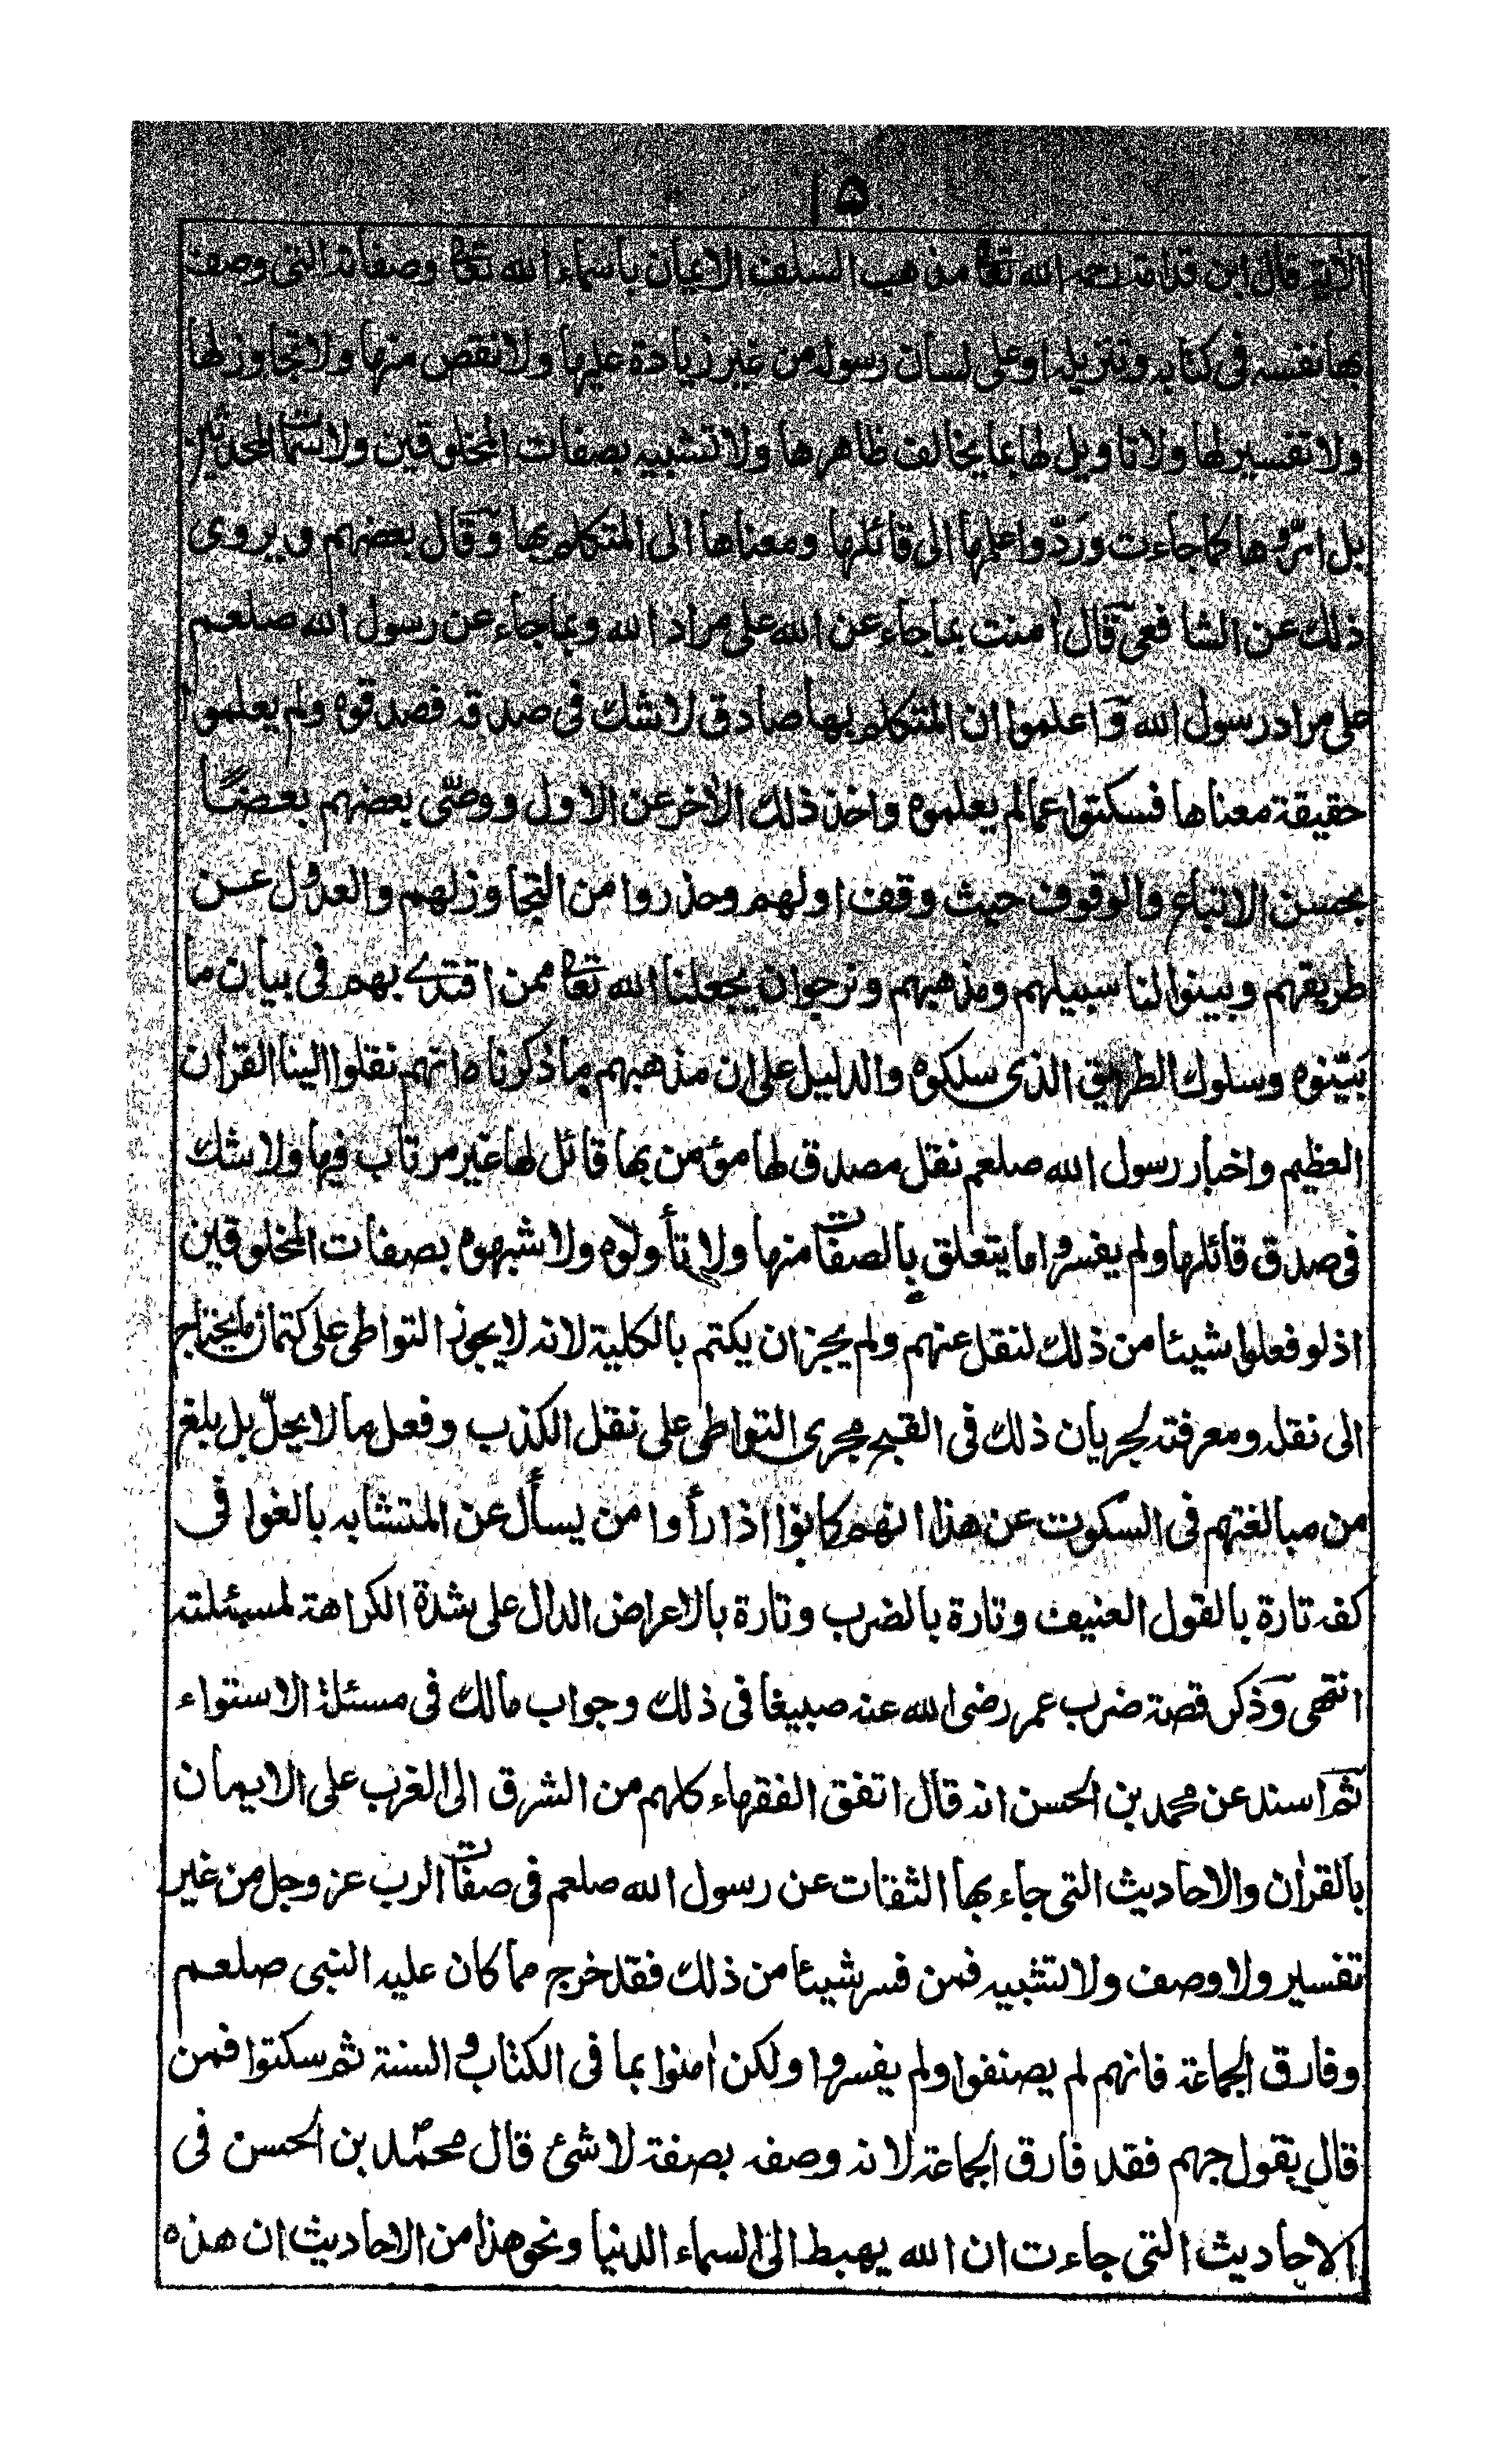 ١٥
الآية قال ابن قدامة رحمه الله تعا مذهب السلف الايمان باسماء الله تعا وصفاته التى وصف
بها نفسه فى كتابه وتنزيله او على لسان رسوله من غير زيادة عليها ولا نقص منها ولا تجاوز لها
ولا تفسير لها ولا تاويل لها بما يخالف ظاهرها ولا تشبيه بصفات المخلوقين ولا سمات المحدثين
بل امرّوها كما جاءت وردّوا علمها الى قائلها ومعناها الى المتكلم بها وقال بعضهم ويروى
ذلك عن الشافعى قال اٰمنت بما جاء عن الله على مراد الله وبما جاء عن رسول الله صلعم
على مراد رسول الله واعلموا ان المتكلم بها صادق لا شك فى صدقه فصدقوه ولم يعلموا
حقيقة معناها فسكتوا عما لم يعلموه واخذ ذلك الاٰخر عن الاول ووصّى بعضهم بعضًا
بحسن الاتباع والوقوف حيث وقف اولهم وحذروا من التجاوز لهم والعدول عن
طريقهم وبينوا لنا سبيلهم ومذهبهم ونرجو ان يجعلنا الله تعا ممن اقتدے بهم فى بيان ما
بيّنوه وسلوك الطريق الذى سلكوه والدليل على ان مذهبهم ما ذكرنا انهم نقلوا الينا القراٰن
العظيم واخبار رسول الله صلعم نقل مصدق لها مؤمن بها قائل لها غير مرتاب فيها ولا شك
فى صدق قائلها ولم يفسروا ما يتعلق بالصفات منها ولا تأولوه ولا شبهوه بصفات المخلوقين
اذ لو فعلوا شيئا من ذلك لنقل عنهم ولم يجز ان يكتم بالكلية لانه لا يجوز التواطى على كتمان ما يحتاج
الى نقله ومعرفته لجريان ذلك فى القبح مجرى التواطى على نقل الكذب وفعل ما لا يحلّ بل بلغ
من مبالغتهم فى السكوت عن هذا انهم كانوا اذا رأوا من يسأل عن المتشابه بالغوا فى
كفه تارة بالقول العنيف وتارة بالضرب وتارة بالاعراض الدال على شدة الكراهة لمسئلته
انتهى وذكر قصة ضرب عمر رضى الله عنه صبيغا فى ذلك وجواب مالك فى مسئلة الاستواء
ثم اسند عن محمد بن الحسن انه قال اتفق الفقهاء كلهم من الشرق الى الغرب على الايمان
بالقراٰن والاحاديث التى جاء بها الثقات عن رسول الله صلعم فى صفات الرب عز وجل من غير
تفسير ولا وصف ولا تشبيه فمن فسر شيئا من ذلك فقد خرج مما كان عليه النبى صلعم
وفارق الجماعة فانهم لم يصنفوا ولم يفسروا ولكن اٰمنوا بما فى الكتاب والسنة ثم سكتوا فمن
قال بقول جهم فقد فارق الجماعة لانه وصفه بصفة لا شئ قال محمد بن الحسن فى
الاحاديث التى جاءت ان الله يهبط الى السماء الدنيا ونحو هذا من الاحاديث ان هذه